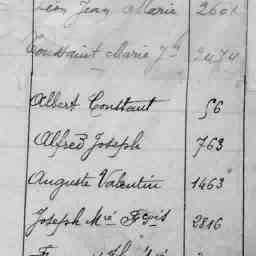 Léon Jean Marie 2601
Toussaint Marie Jh 2474
Albert Constant 56
Alfred Joseph 763
Auguste Valentin 1463
Joseph Mie Fçois 2816